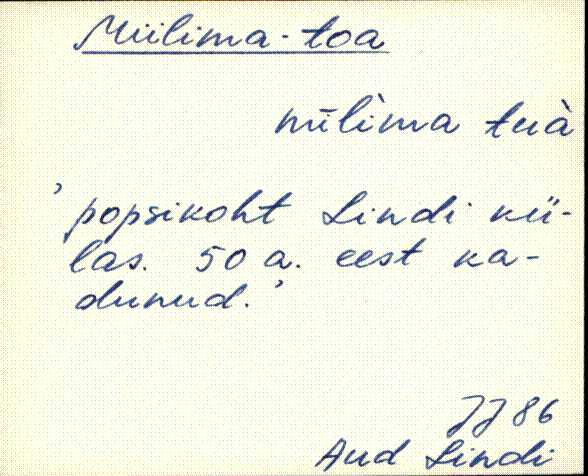 Miilima-toa
mīlìma tuà
'popsikoht Lindi kü-
las. 50 a. eest ka-
dunud.'
JJ 86
Aud Lindi